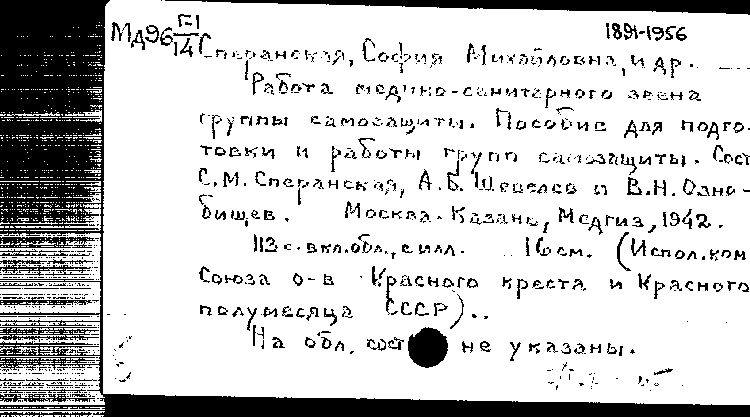 1891-1956
Мд96 Г-1
14
Сперанская, София Михайловна, и др.
Работа медико-санитарного звена
группы самозащиты. Пособие для подго-
товки и работы групп самозащиты. Сост
С.М. Сперанская, А.Б. Шевелев и В.Н. Озно-
бищев. Москва-Казань, Медгиз, 1942.
113 с. вкл. обл., с илл. 16 см. (Испол. ком
Союза о-в Красного креста и Красного
полумесяца СССР)..
На обл. сост не указаны.